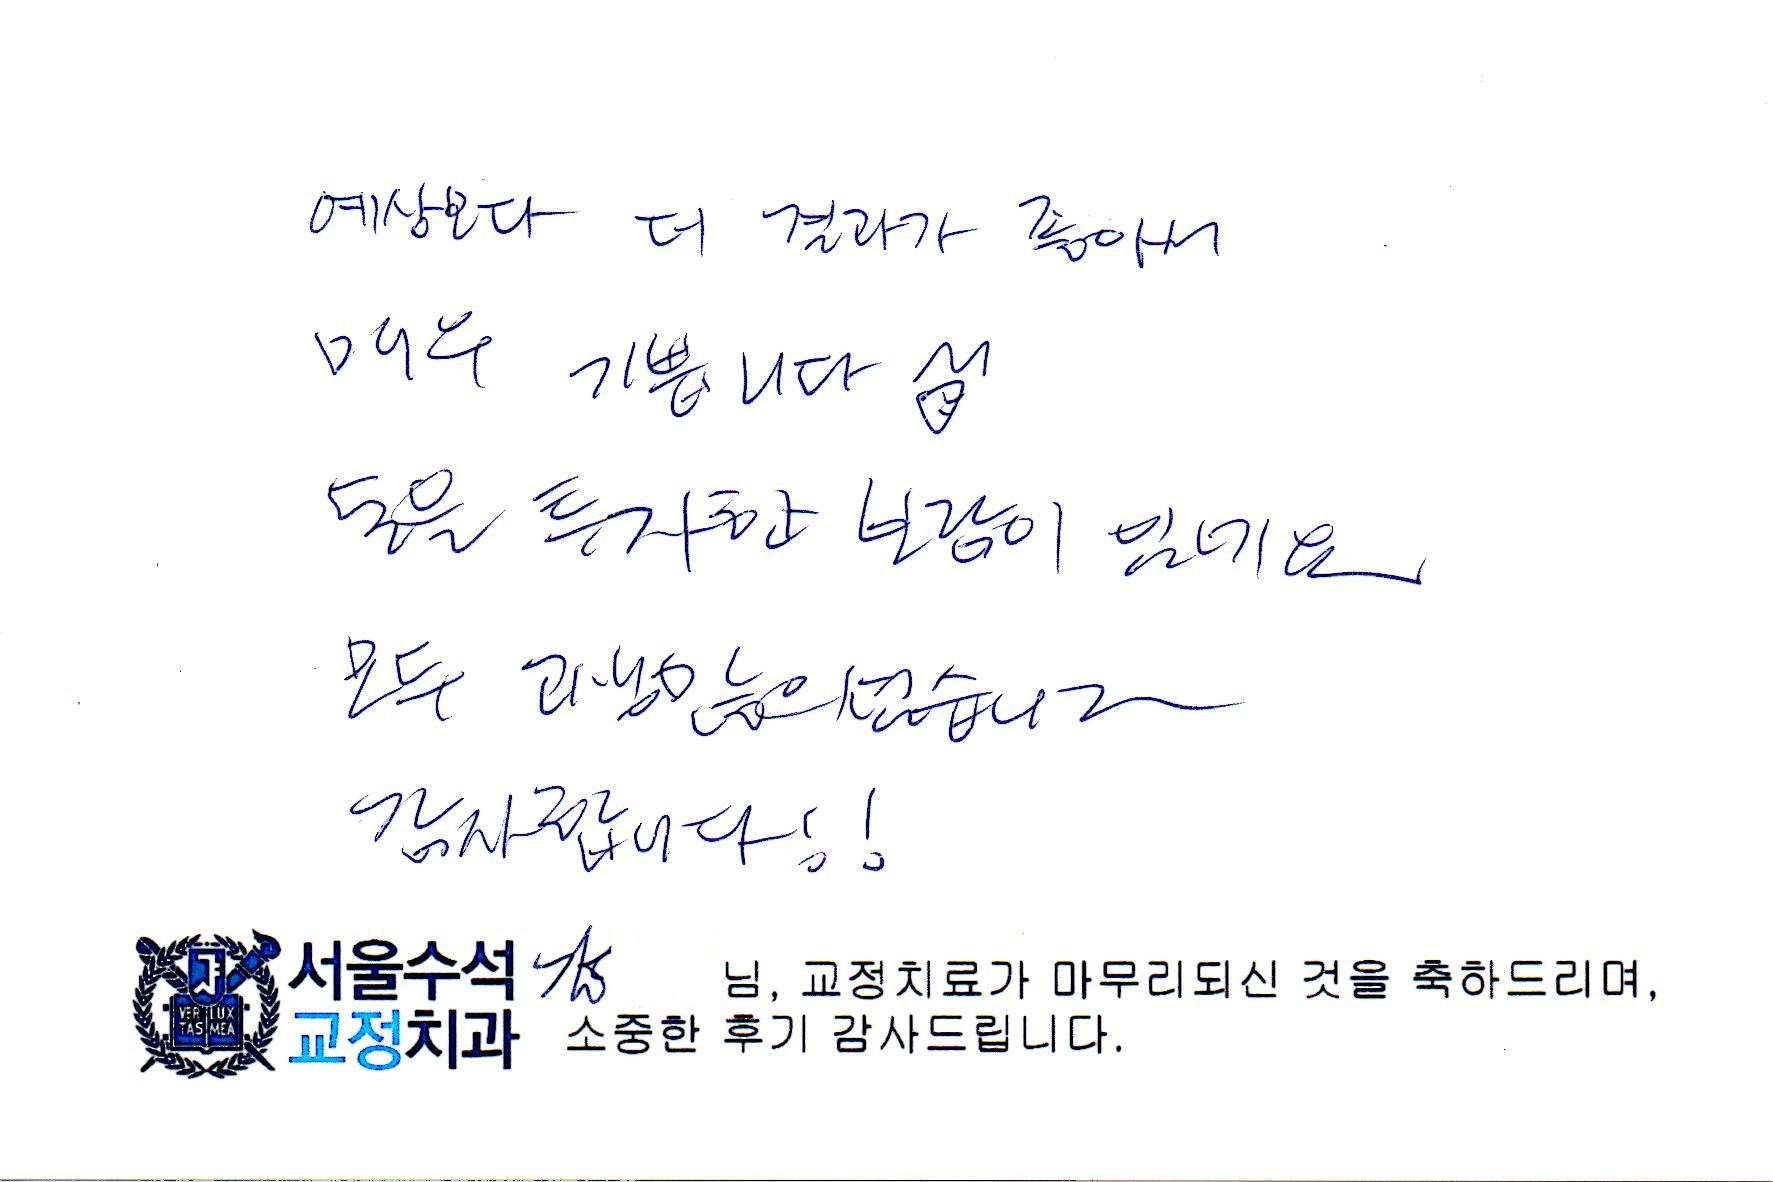 예상보다 더 결과가 좋아서
매우 기쁩니다
돈을 투자한 보람이 있네요
모두 고생 많으셨습니다
감사합니다!!
서울수석
교정치과
님, 교정치료가 마무리되신 것을 축하드리며,
소중한 후기 감사드립니다.
VERI LUX
TAS MEA